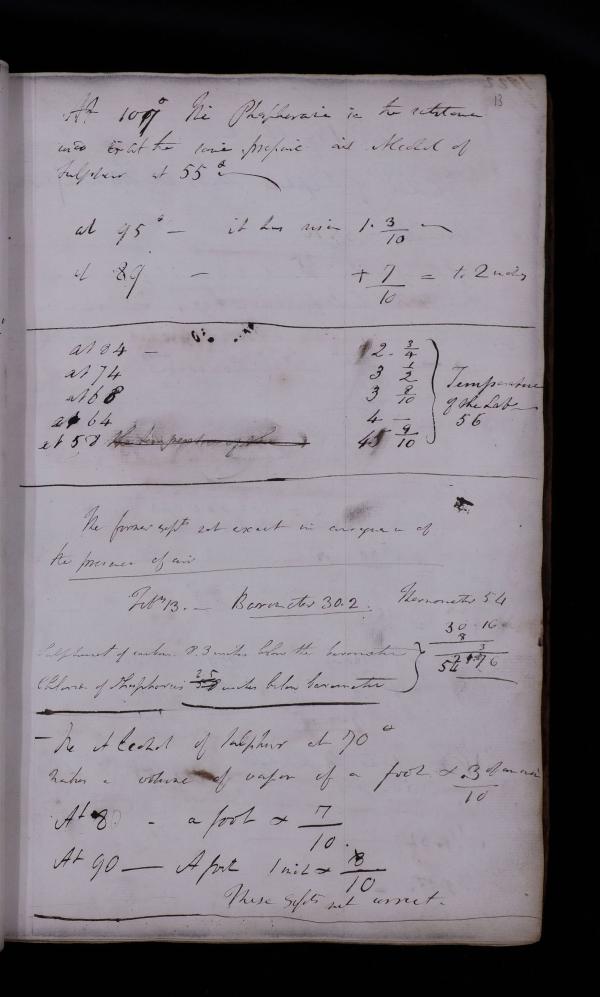 13
At 107° the Phosphorane is the substance
at the same pressure as Alcohol of
Sulphur at 55°
at 95° — it has risen 1. 3/10
at 89 — + 7/10 = to 2 inches
at 84 — 2. 3/4
at 74 3 1/2
at 68 3 8/10
at 64 4 —
at 58 the temperature of the 5 9/10
Temperature
of the Lab
56
The former expts not exact in consequence of
the presence of air
Feb 13. — Barometer 30.2. Thermometer 54
30.16
Sulphuret of carbon 8.3 inches below the barometer
Chloride of Phosphorus inches below barometer
— The Alcohol of Sulphur at 70°
makes a volume of vapor of a foot & .3/10 of an inch
At 80 - a foot & 7/10.
At 90 — A foot 1 inch & 8/10
These expts not correct.